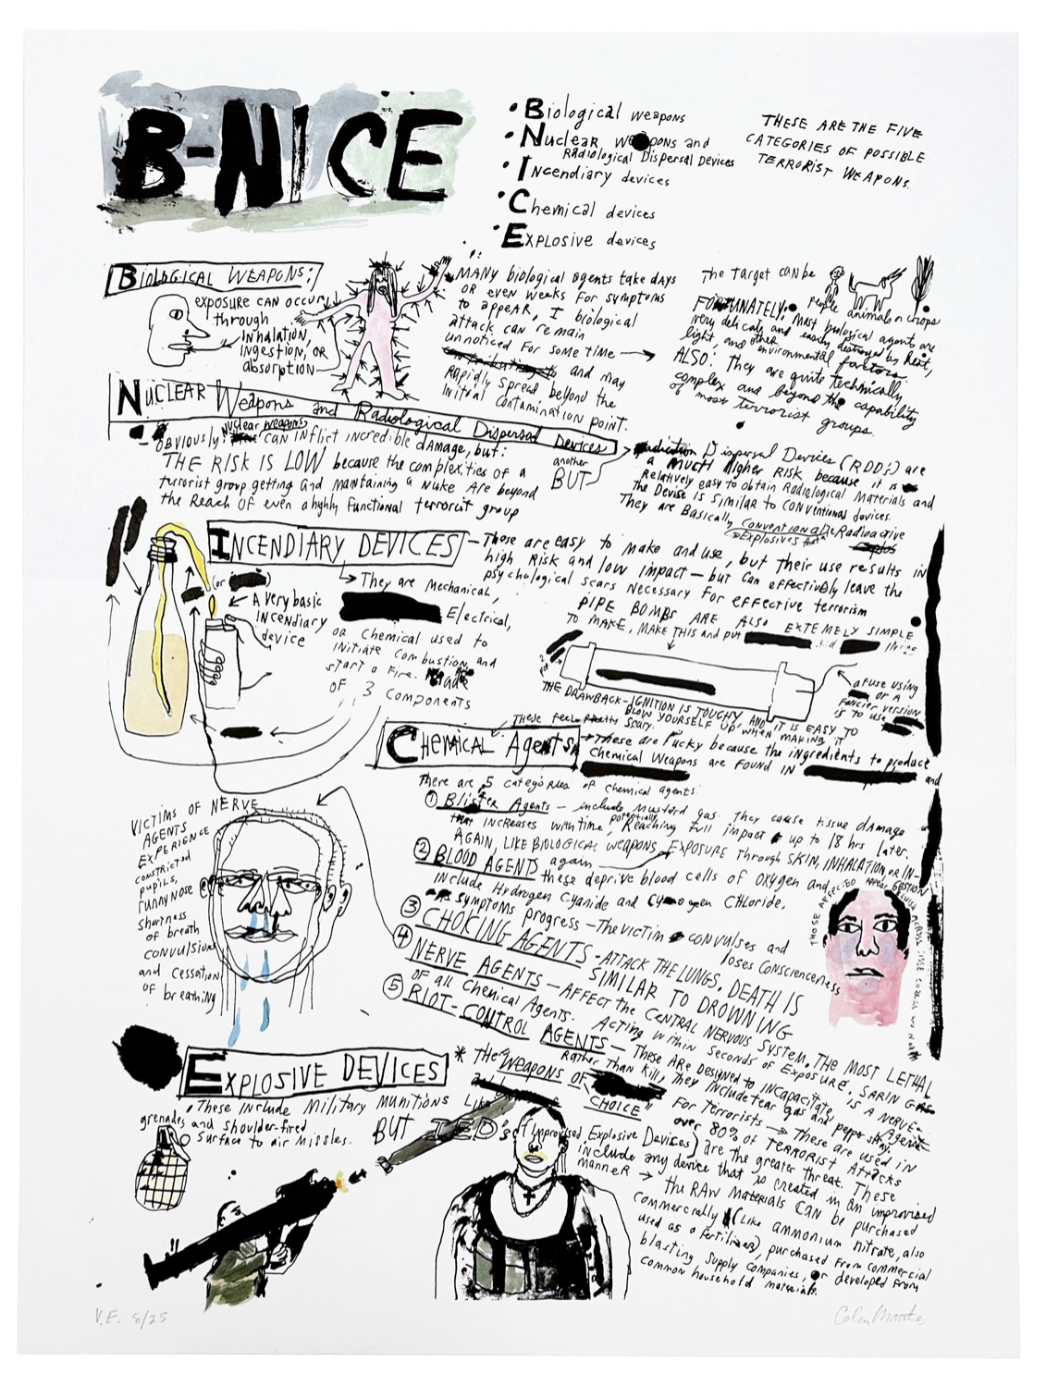 B-NICE
• Biological weapons
• Nuclear weapons and
Radiological Dispersal Devices
• Incendiary devices
• Chemical devices
• Explosive devices
THESE ARE THE FIVE
CATEGORIES OF POSSIBLE
TERRORIST WEAPONS.
BIOLOGICAL WEAPONS:
exposure can occur
through
inhalation,
ingestion, or
absorption
MANY biological agents take days
or even weeks for symptoms
to appear, I biological
attack can remain
unnoticed for some time
and may
Rapidly spread beyond the
initial contamination point.
The target can be
people animals or crops
FORTUNATELY, most biological agents are
very delicate and easily destroyed by heat,
light, and other environmental factors
ALSO: They are quite technically
complex and beyond the capability
of most terrorist groups.
NUCLEAR Weapons and Radiological Dispersal Devices
Nuclear weapons
OBVIOUSLY: CAN inflict incredible damage, but:
THE RISK IS LOW because the complexities of a
terrorist group getting and maintaining a Nuke Are beyond
the Reach of even a highly functional terrorist group
another
BUT
Dispersal Devices (RDDs) are
a MUCH higher Risk because it is
Relatively easy to obtain Radiological Materials and
the Devise is similar to conventional devices.
They are Basically Conventional Radioactive
Explosives
INCENDIARY DEVICES
These are easy to make and use, but their use results in
high Risk and low impact – but can effectively leave the
psychological scars necessary for effective terrorism
(or
A very basic
INCENDIARY
device
They are mechanical,
Electrical,
or Chemical used to
initiate Combustion and
start a fire. Made
of 3 components
PIPE BOMBS ARE ALSO EXTEMELY SIMPLE
TO MAKE, MAKE THIS and put
a fuse using
or a
fancier version
is to use
THE DRAWBACK – IGNITION IS TOUCHY AND IT IS EASY TO
BLOW YOURSELF UP WHEN MAKING IT
These feel pretty scary.
CHEMICAL Agents
These are fucky because the ingredients to produce
Chemical Weapons are FOUND IN
and
There are 5 categories of chemical agents:
① Blister Agents – include mustard gas. they cause tissue damage
that increases with time, potentially Reaching full impact up to 18 hrs later.
AGAIN, LIKE BIOLOGICAL WEAPONS, EXPOSURE through SKIN, INHALATION, OR IN-
GESTION
② BLOOD AGENTS again
these deprive blood cells of oxygen and
include Hydrogen Cyanide and Cyanogen Chloride.
As symptoms progress – The victim convulses and
loses Conscienceness
③ CHOKING AGENTS – ATTACK THE LUNGS. DEATH IS
SIMILAR TO DROWNING
④ NERVE AGENTS – AFFECT the CENTRAL NERVOUS SYSTEM. THE MOST LETHAL
of all Chemical Agents. Acting within seconds of Exposure. SARIN GAS
IS A NERVE-Agent
⑤ RIOT-CONTROL AGENTS – These ARE DESIGNED to INCAPACITATE,
Rather than kill, they include tear gas and pepper spray.
VICTIMS OF NERVE
AGENTS
EXPERIENCE
constricted
pupils,
runny nose
shortness
of breath
convulsions
and cessation
of breathing
EXPLOSIVE DEVICES
* The "Weapons of
CHOICE"
For terrorists → These are used in
over 80% of TERRORIST Attacks
These include Military Munitions Like
grenades and shoulder-fired
surface to air Missles.
BUT IED's (Improvised Explosive Devices) are the greater threat. These
include any device that is created in an improvised
manner → the RAW Materials CAN be purchased
commercially (Like ammonium nitrate, also
used as a fertilizer), purchased from commercial
blasting supply companies, or developed from
common household materials.
V.E. 5/25